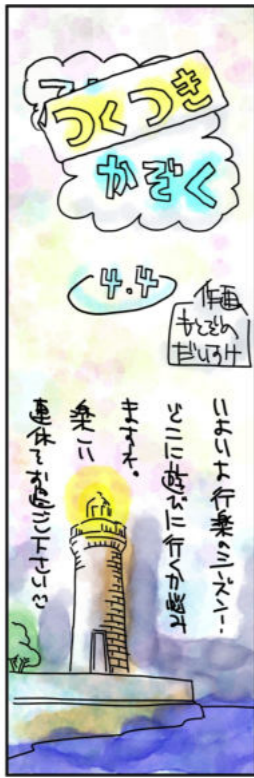 つくつき
かぞく
4.4
作画
もとぞの
だいすけ
いよいよ行楽のシーズン！
どこに遊びに行くか悩み
ますね。
楽しい
連休をお過ごし下さい